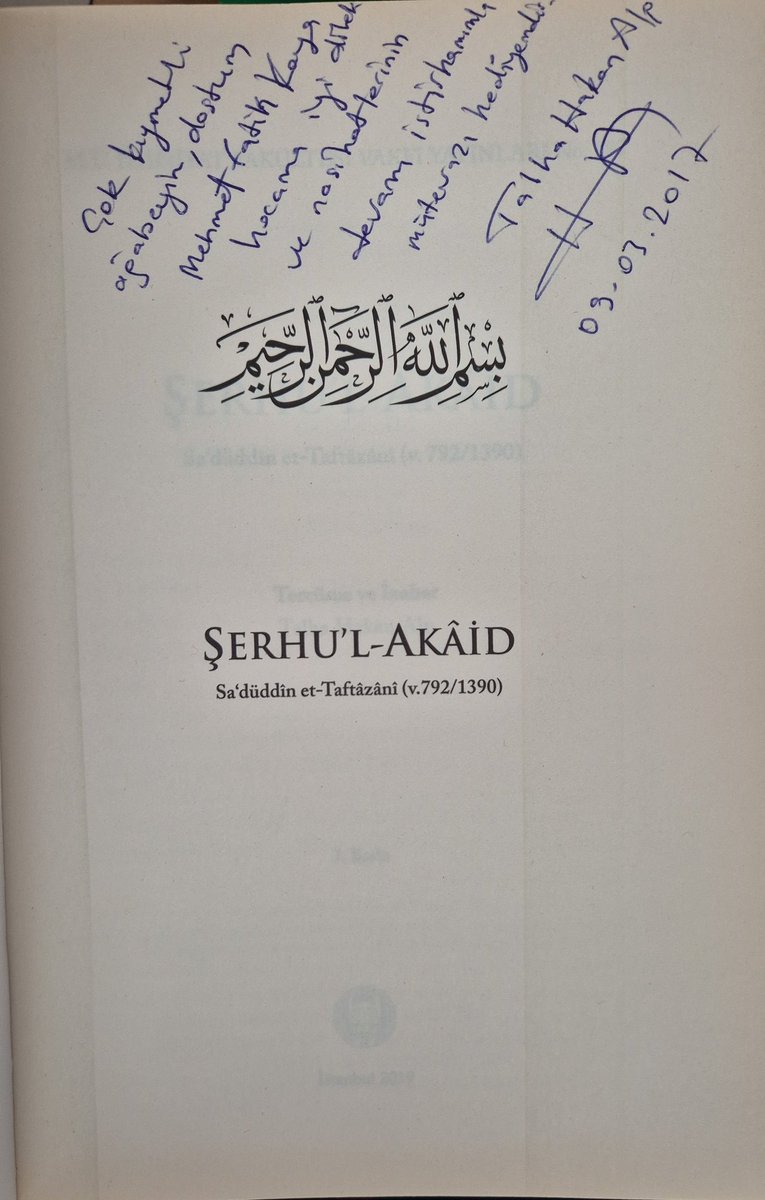 Çok kıymetli
ağabeyim dostum
Mehmet Fatih Kaya
hocama iyi dilek
ve nasihatlerinin
devamı istirhamımla
mütevazı hediyemdir.
Talha Hakan Alp
03.03.2017
بِسْمِ اللَّهِ الرَّحْمَنِ الرَّحِيمِ
ŞERHU’L-AKÂİD
Sa‘düddîn et-Taftâzânî (v.792/1390)